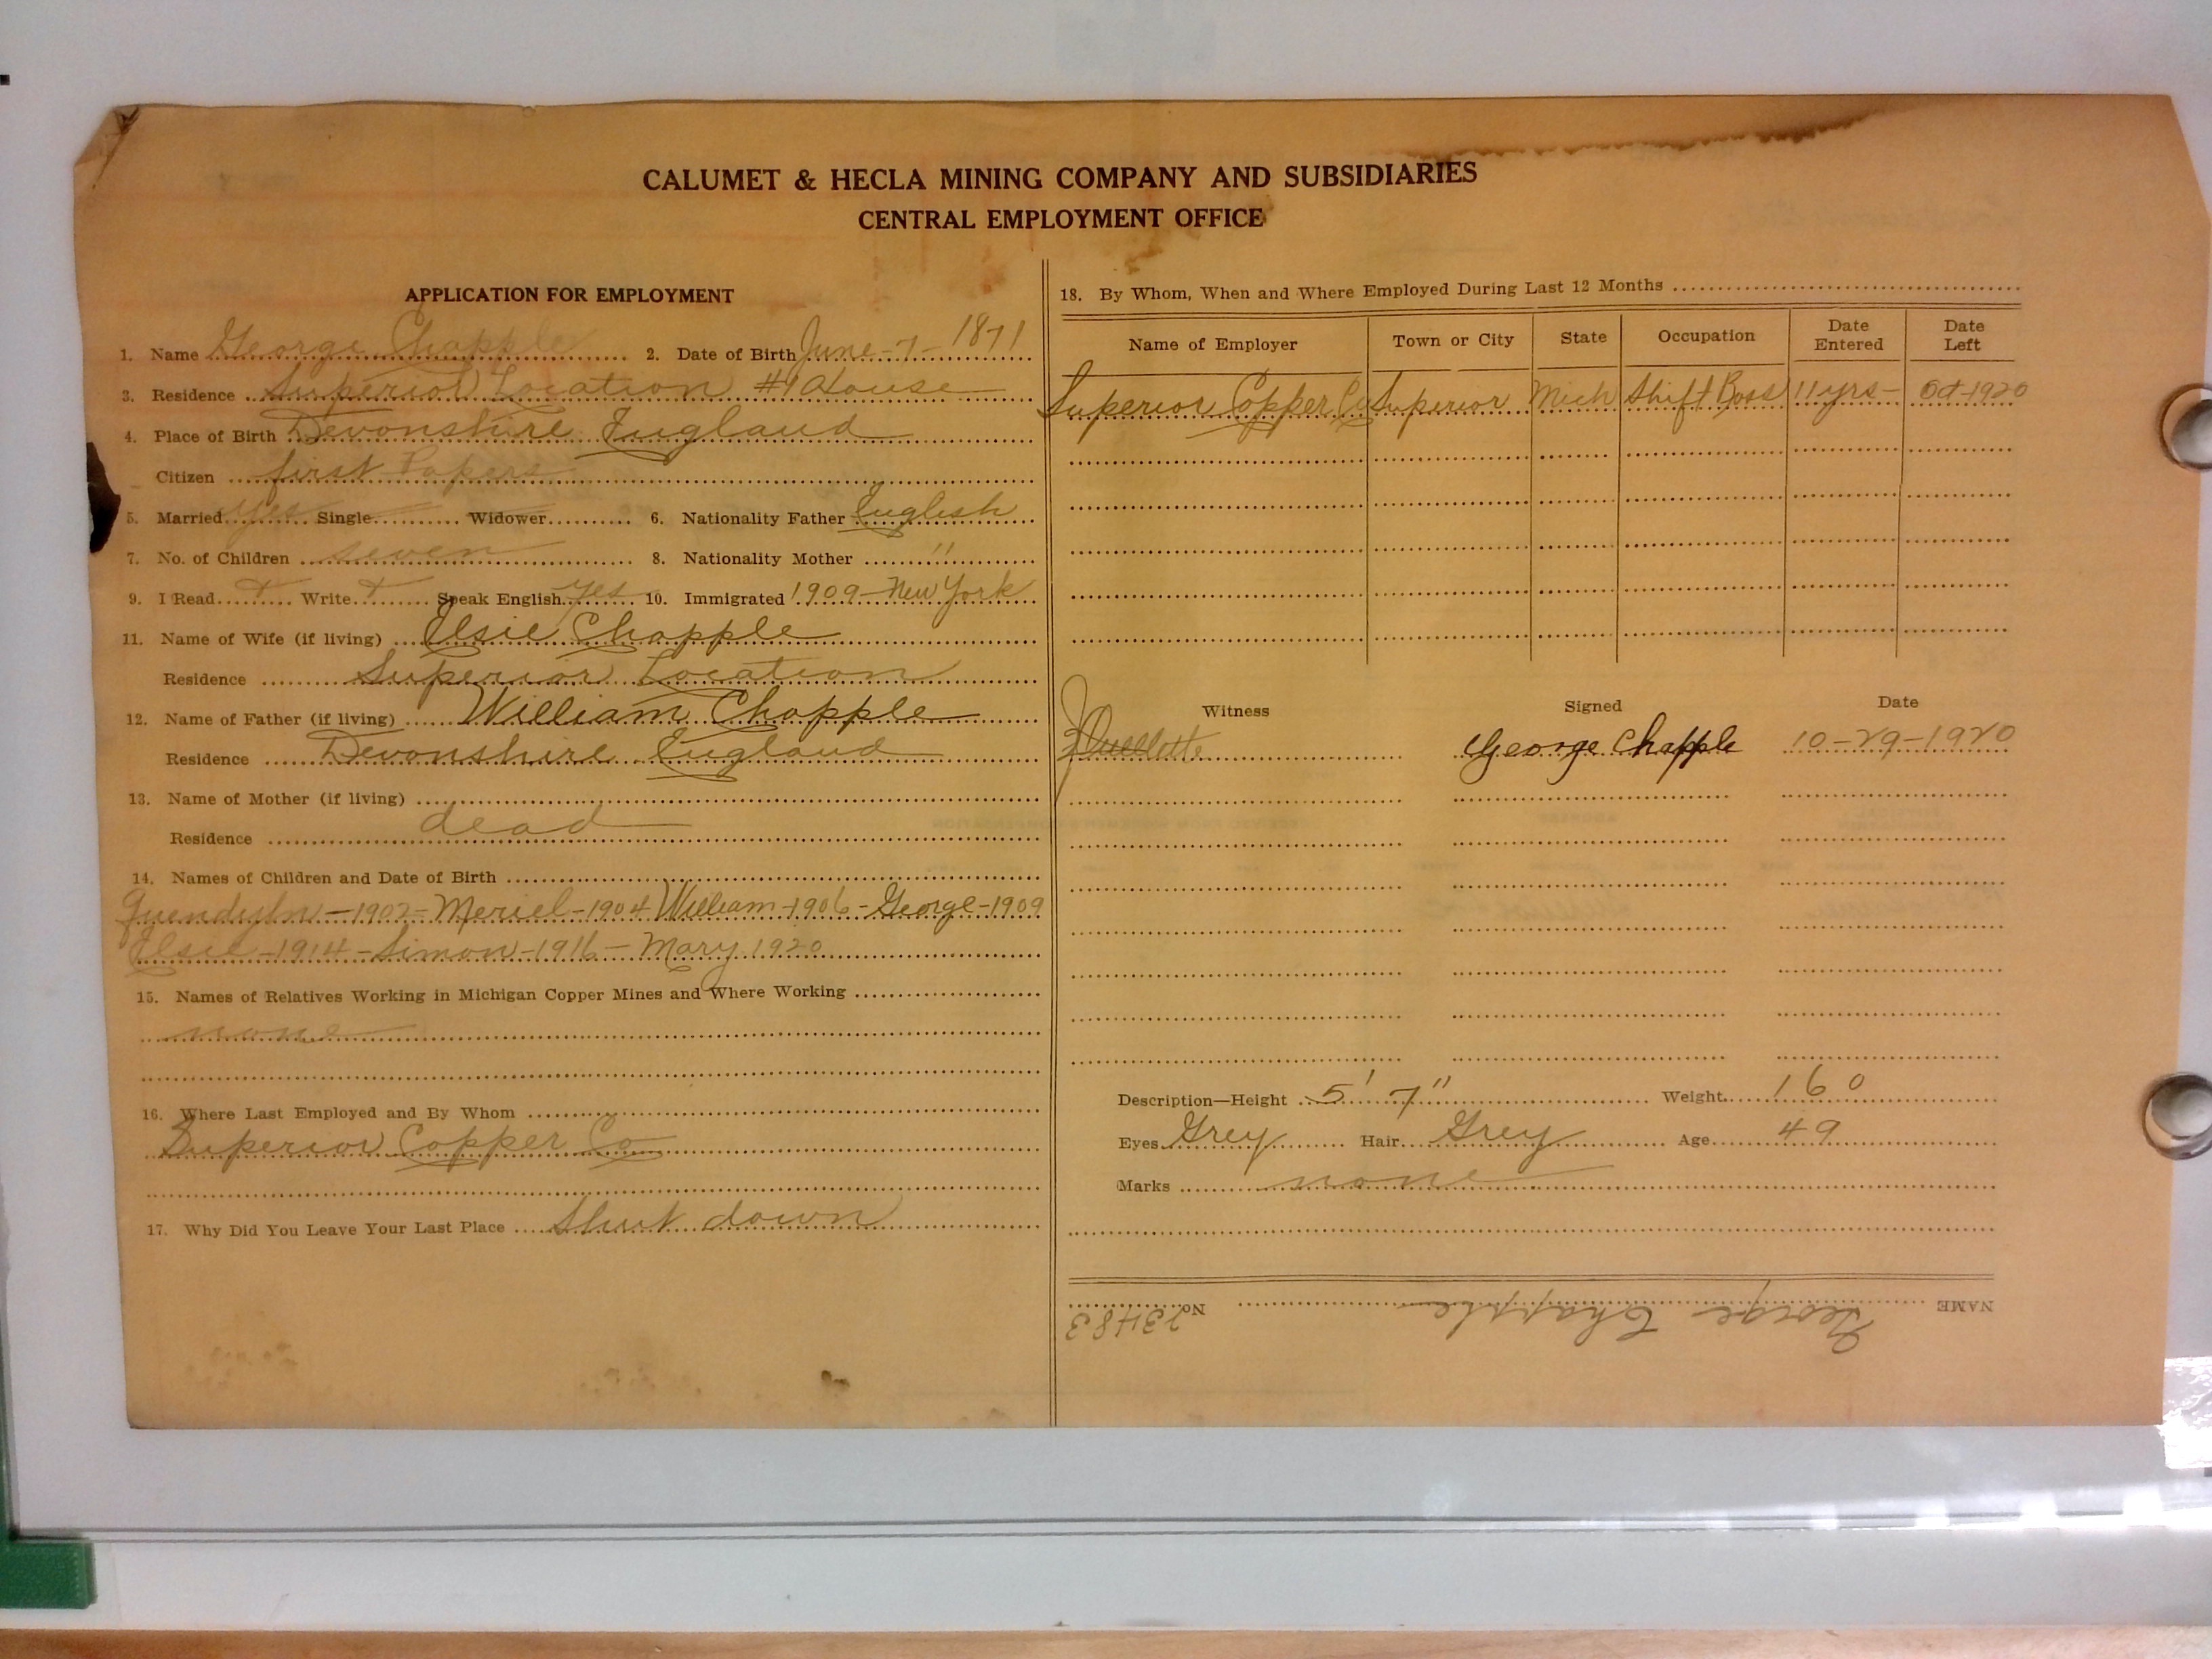 CALUMET & HECLA MINING COMPANY AND SUBSIDIARIES
CENTRAL EMPLOYMENT OFFICE
APPLICATION FOR EMPLOYMENT
1. Name George Chapple 2. Date of Birth June-7-1871
3. Residence Superior Location #1 House
4. Place of Birth Devonshire England
Citizen first Papers
5. Married yes Single Widower 6. Nationality Father English
7. No. of Children seven 8. Nationality Mother "
9. I Read Write Speak English yes 10. Immigrated 1909-New York
11. Name of Wife (if living) Elsie Chapple
Residence Superior Location
12. Name of Father (if living) William Chapple
Residence Devonshire England
13. Name of Mother (if living)
Residence dead
14. Names of Children and Date of Birth
Guendyln-1902-Meriel-1904 William-1906-George-1909
Elsie-1914-Simon-1916-Mary 1920
15. Names of Relatives Working in Michigan Copper Mines and Where Working
none
16. Where Last Employed and By Whom
Superior Copper Co
17. Why Did You Leave Your Last Place Shut down
18. By Whom, When and Where Employed During Last 12 Months
Name of Employer Town or City State Occupation Date Entered Date Left
Superior Copper Co Superior Mich Shift Boss 11 yrs- Oct-1920
Witness Signed Date
George Chapple 10-29-1920
Description—Height 5' 7" Weight 160
Eyes Grey Hair Grey Age 49
Marks none
NAME George Chapple No. 23483